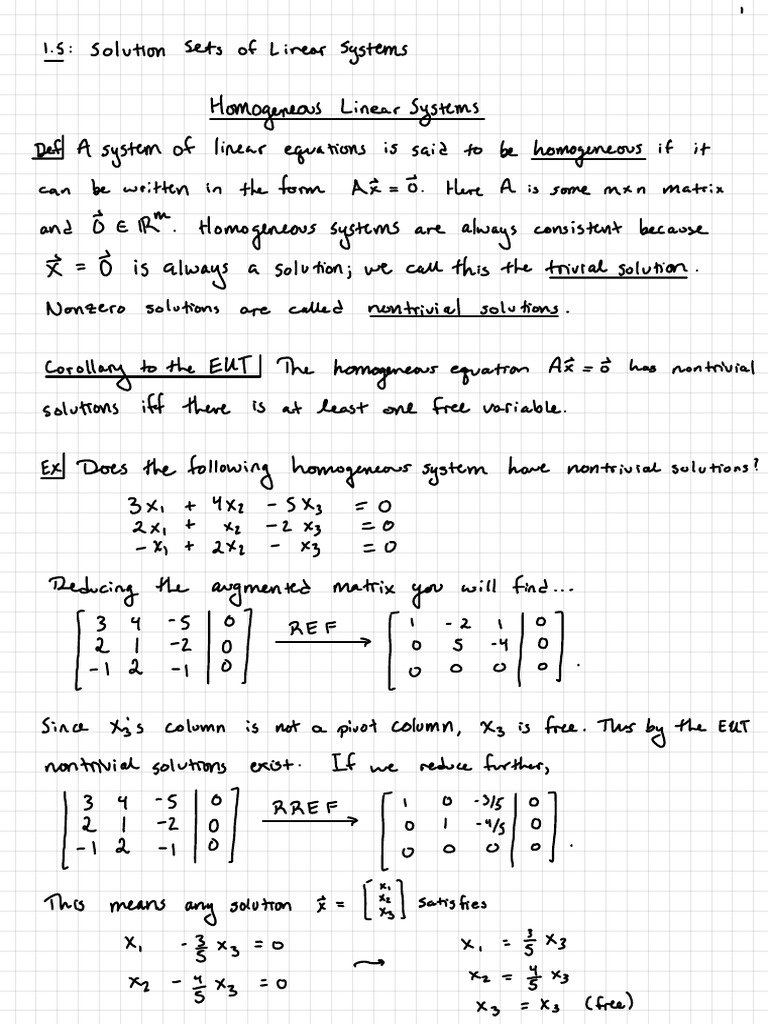 1
1.5: Solution Sets of Linear Systems
Homogeneous Linear Systems
Def| A system of linear equations is said to be homogeneous if it
can be written in the form Ax⃗ = 0⃗. Here A is some m×n matrix
and 0⃗ ∈ ℝᵐ. Homogeneous systems are always consistent because
x⃗ = 0⃗ is always a solution; we call this the trivial solution.
Nonzero solutions are called nontrivial solutions.
Corollary to the EUT| The homogeneous equation Ax⃗ = 0⃗ has nontrivial
solutions iff there is at least one free variable.
Ex| Does the following homogeneous system have nontrivial solutions?
3x₁ + 4x₂ - 5x₃ = 0
2x₁ + x₂ - 2x₃ = 0
-x₁ + 2x₂ - x₃ = 0
Reducing the augmented matrix you will find...
[3 4 -5 | 0] REF → [1 -2 1 | 0]
[2 1 -2 | 0] [0 5 -4 | 0]
[-1 2 -1 | 0] [0 0 0 | 0].
Since x₃'s column is not a pivot column, x₃ is free. Thus by the EUT
nontrivial solutions exist. If we reduce further,
[3 4 -5 | 0] RREF → [1 0 -3/5 | 0]
[2 1 -2 | 0] [0 1 -4/5 | 0]
[-1 2 -1 | 0] [0 0 0 | 0].
This means any solution x⃗ = [x₁ x₂ x₃] satisfies
x₁ - 3/5 x₃ = 0 → x₁ = 3/5 x₃
x₂ - 4/5 x₃ = 0 x₂ = 4/5 x₃
x₃ = x₃ (free)